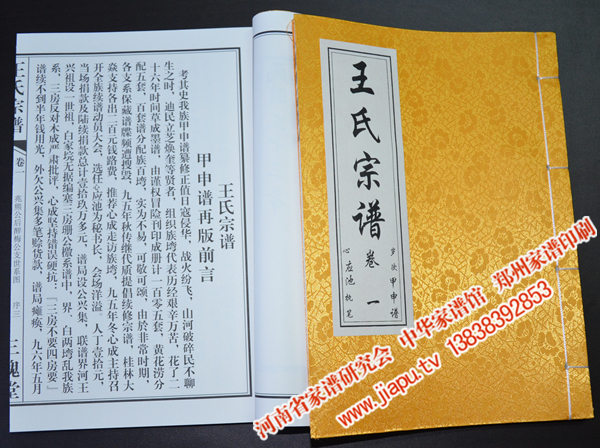 王氏宗谱
甲申谱再版前言
考其史我族甲申谱纂修正值日寇侵华，战火纷飞，山河破碎民不聊
生之时，迪民立芝焕奎等贤者，组织族塆代表历经艰辛万苦，花了二
十六年时间草成墨谱，由谨权冒险刊印成册计一百零五套，黄花涝分
配五套，百套谱分配族百塆，实为不易，可敬可颂，由於非常时期，
各支系保藏谱牒频遭搜毁，九五年秋传继代质提倡续修宗谱，桂林大
焱支持各出二百元钱路费，推荐心成走访族塆，九五年冬心成主持召
开全族续谱动员大会，选任心应池为秘书长，会场洋溢。人丁壹拾元，
当场捐款及陆续捐款总计壹拾玖万多元，谱局设公兴集，联谱界河王
兴祖设一世祖，白家垸无据编塞三房珊公徽系谱中，界、白两塆乱我族
系，三房反对木成严肃批评，心成坚持错误硬抗：「三房不要四房要」
谱续不到半年钱用光，外欠公兴集多笔赊货款，谱局瘫痪，九六年五月
王氏宗谱
卷一
兆熊公后醉梅公支世系图
序三
三槐堂
王氏宗谱
卷一
岁次甲申谱
心应池执笔
河南省家谱研究会 中华家谱馆 郑州家谱印刷
www.jiapu.tv 13838392853